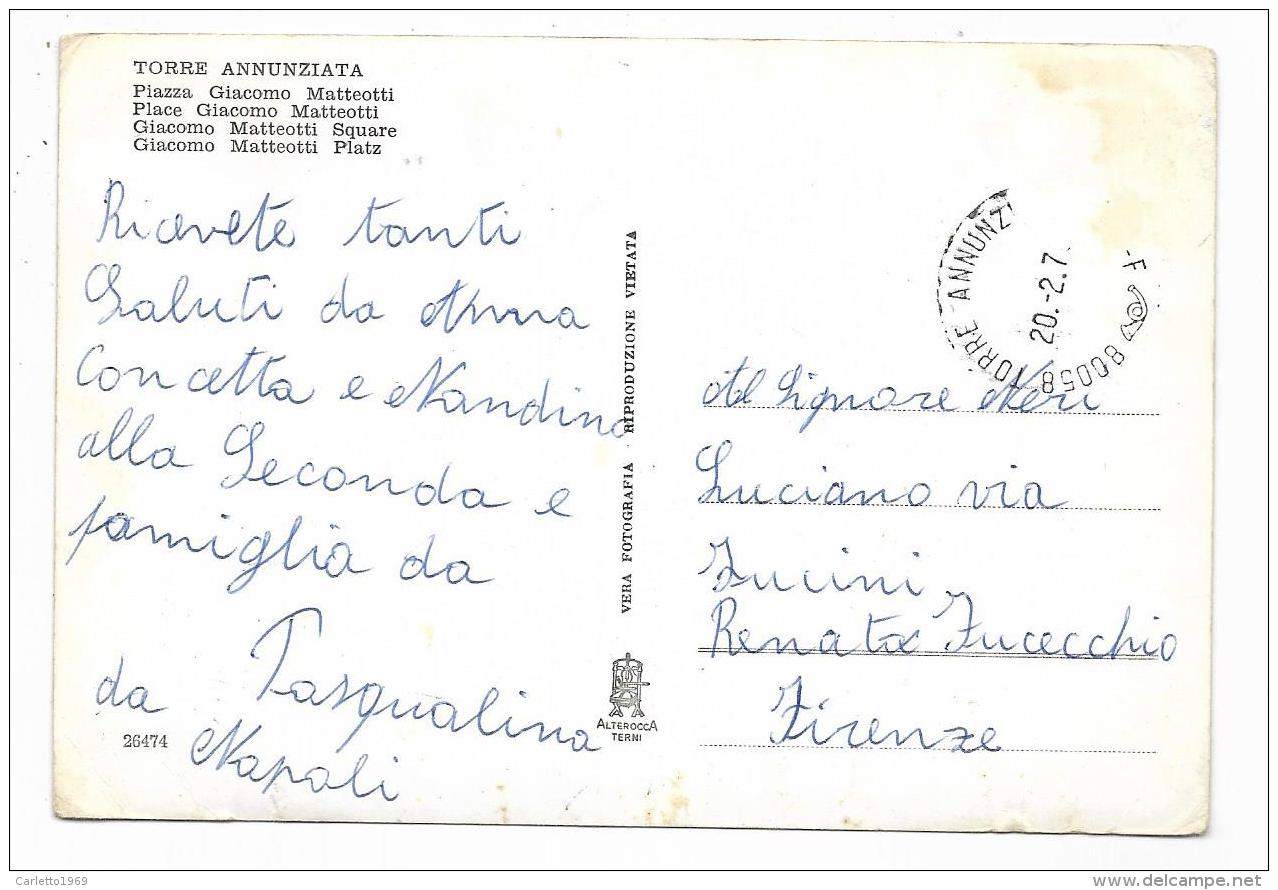 TORRE ANNUNZIATA
Piazza Giacomo Matteotti
Place Giacomo Matteotti
Giacomo Matteotti Square
Giacomo Matteotti Platz
Ricevete tanti
Saluti da Anna
Concetta e Nandino
alla Seconda e
famiglia da
Pasqualina
da Napoli
26474
VERA FOTOGRAFIA - RIPRODUZIONE VIETATA
ALTEROCCA
TERNI
80058 TORRE ANNUNZ
20.-2.7
Al Signore Neri
Luciano via
Fucini
Renata Fucecchio
Firenze
Carletto1969
delcampe.net